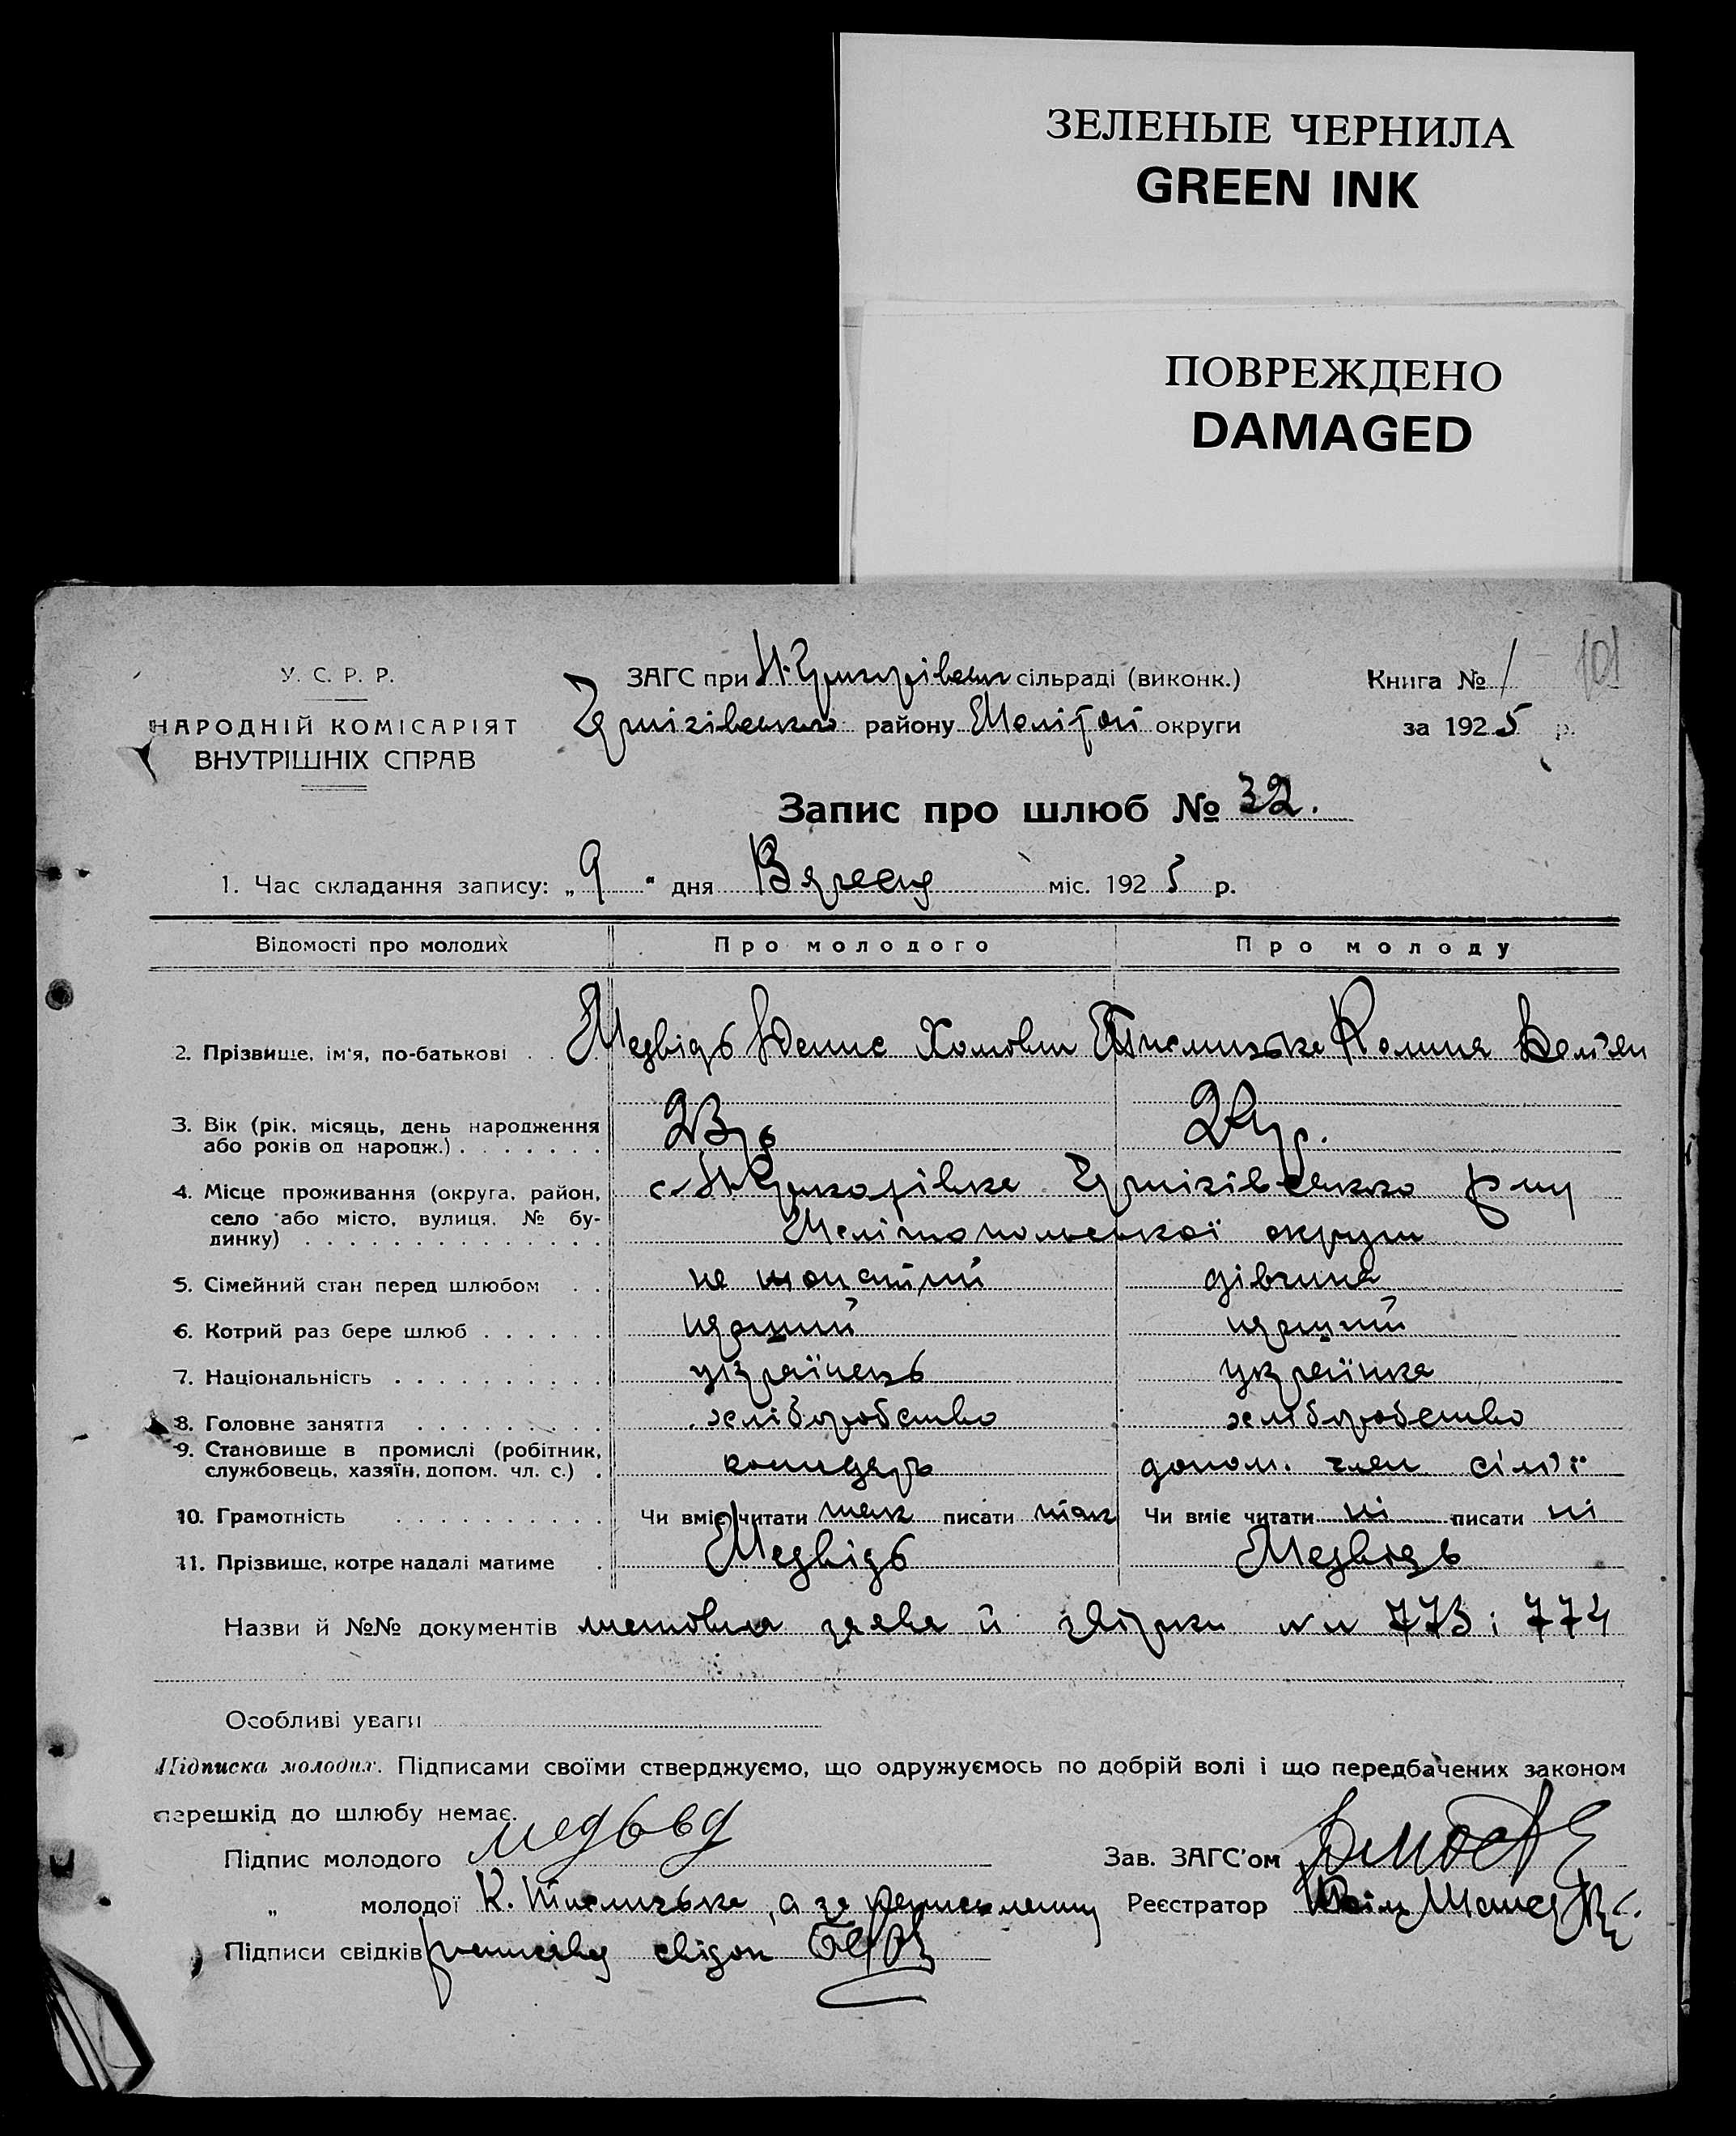 ЗЕЛЕНЫЕ ЧЕРНИЛА
GREEN INK
ПОВРЕЖДЕНО
DAMAGED
У. С. Р. Р.
НАРОДНІЙ КОМІСАРІЯТ
ВНУТРІШНІХ СПРАВ
ЗАГС при сільраді (виконк.)
району округи
Книга № 1
101
за 1925 р.
Запис про шлюб № 32.
1. Час складання запису: „9" дня Вересня міс. 1925 р.
Відомості про молодих Про молодого Про молоду
2. Прізвище, ім'я, по-батькові . . Медвідь Денис Хомович
3. Вік (рік, місяць, день народження
або років од народж.) . . . . . . . 23 р 20 р.
4. Місце проживання (округа, район,
село або місто, вулиця, № бу-
динку) . . . . . . . . . . . . . . Мелітопольської округи
5. Сімейний стан перед шлюбом . . не дівчина
6. Котрий раз бере шлюб . . . . . . перший перший
7. Національність . . . . . . . . . . українець українка
8. Головне заняття . . . . . . . . . хліборобство хліборобство
9. Становище в промислі (робітник,
службовець, хазяїн, допом. чл. с.) . допом. член сім'ї
10. Грамотність . . . . . . . . . . Чи вміє читати так писати так Чи вміє читати ні писати ні
11. Прізвище, котре надалі матиме . Медвідь Медвідь
Назви й №№ документів заява й 773 і 774
Особливі уваги
Підписка молодих. Підписами своїми стверджуємо, що одружуємось по добрій волі і що передбачених законом
перешкід до шлюбу немає.
Підпис молодого Зав. ЗАГС'ом
„ молодої К. , а за Реєстратор
Підписи свідків свідок